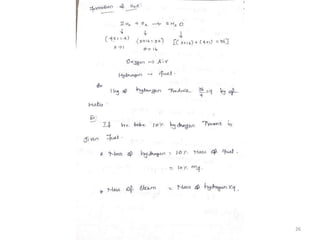 formation of H₂O:
2H₂ + O₂ → 2H₂O
↓ ↓ ↓
(4×1=4) (2×16=32)
Oxygen → Air
Hydrogen → fuel.
1kg of hydrogen Produce 36/4 = 9 kg of
Ex: If we take 10% hydrogen Present in
given fuel.
* Mass of hydrogen = 10% Mass of fuel.
= 10% mf.
* Mass of Steam = Mass of hydrogen × 9.
26